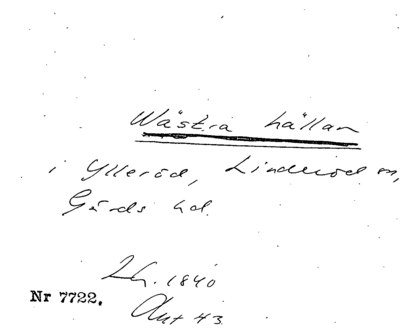 Wästra hällan
i Ylleröd, Linderöd sn,
Gärds hd.
Lh. 1840
Akt 43
Nr 7722.